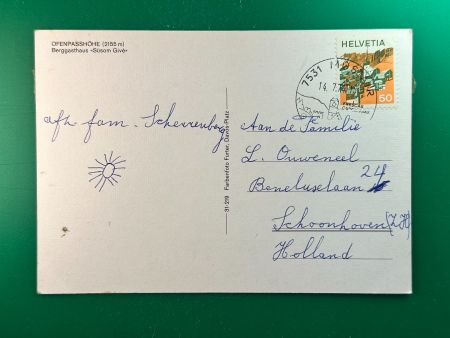 OFENPASSHÖHE (2155 m)
Berggasthaus «Süsom Givè»
HELVETIA
50
7531 MÜSTAIR
14.7.
afz. fam. Scherrenberg
31-219 Farbenfoto Furter, Davos-Platz
Aan de Familie
L. Ouweneel
Beneluxlaan 24
Schoonhoven (Z.H)
Holland